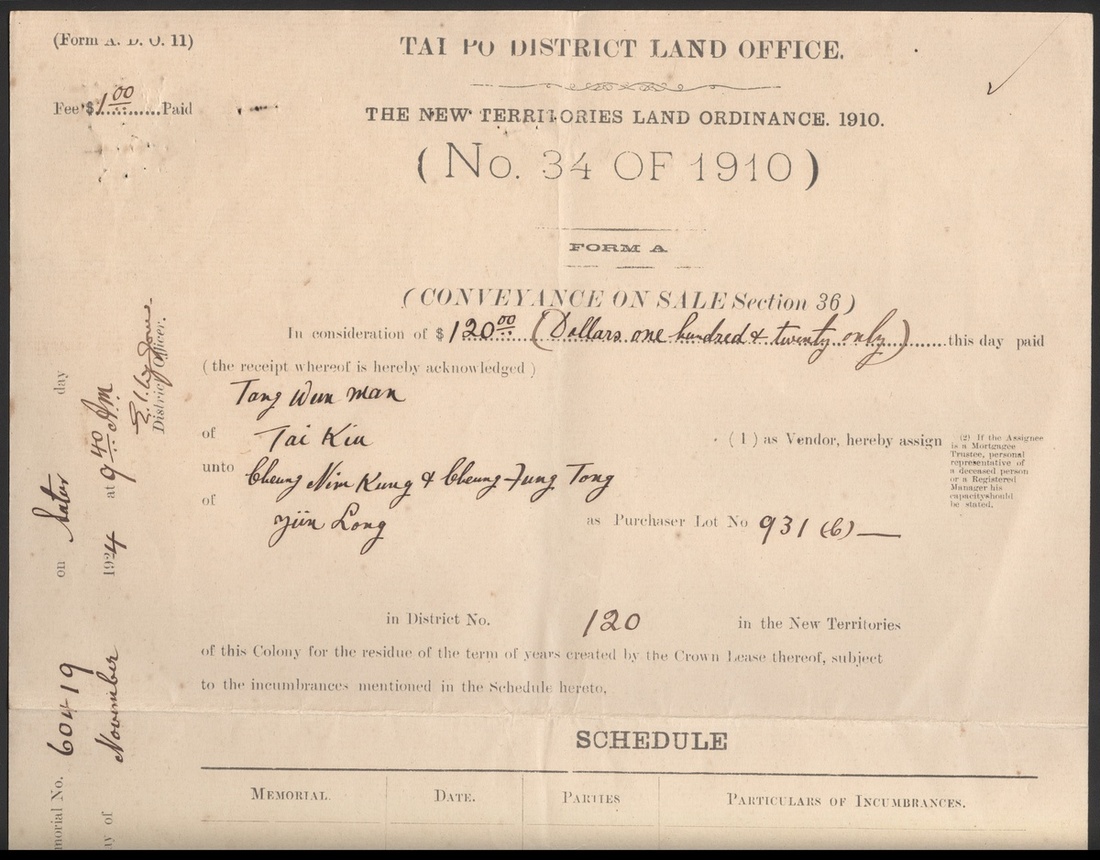 (Form A. D. O. 11)
Fee $1.00 Paid
TAI PO DISTRICT LAND OFFICE.
THE NEW TERRITORIES LAND ORDINANCE. 1910.
(No. 34 OF 1910)
FORM A
(CONVEYANCE ON SALE Section 36)
In consideration of $120.00 (Dollars one hundred & twenty only) this day paid
(the receipt whereof is hereby acknowledged)
Tang Wun Man
of Tai Kiu (1) as Vendor, hereby assign
unto Cheung Nim Kung & Cheung Fung Tong
of Yün Long as Purchaser Lot No 931 (b)
(2) If the Assignee
is a Mortgagee
Trustee, personal
representative of
a deceased person
or a Registered
Manager his
capacityshould
be stated.
in District No. 120 in the New Territories
of this Colony for the residue of the term of years created by the Crown Lease thereof, subject
to the incumbrances mentioned in the Schedule hereto,
SCHEDULE
MEMORIAL. DATE. PARTIES PARTICULARS OF INCUMBRANCES.
morial No. 60419 on Satur day
ay of November 1924 at 9.40 A.m
District Officer.